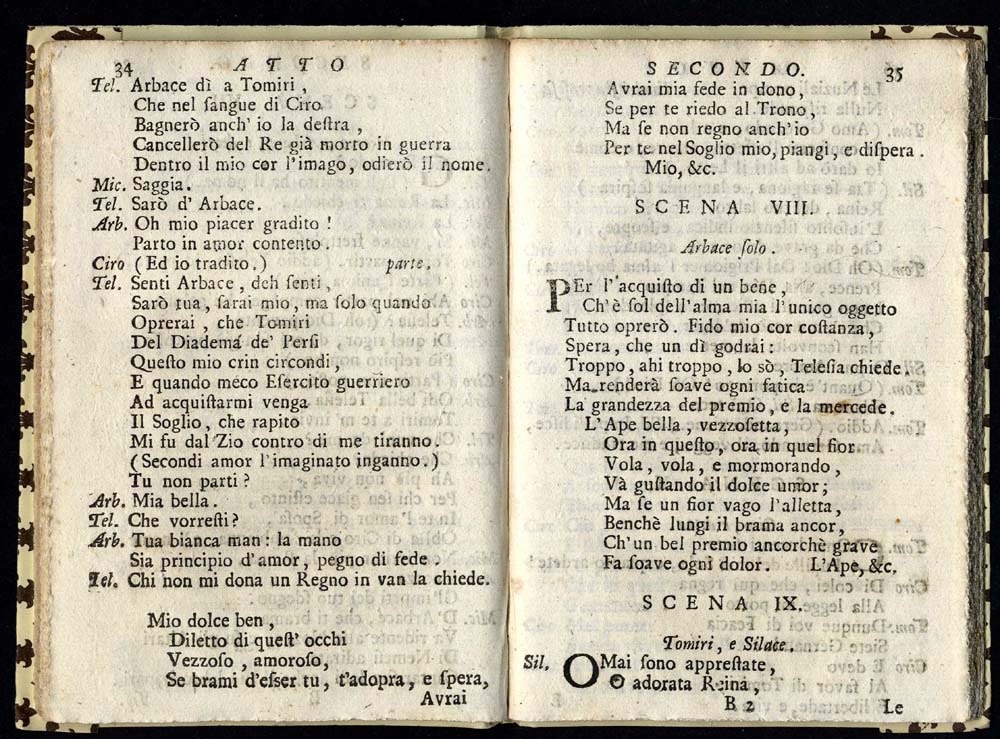 34 ATTO
Tel. Arbace dì a Tomiri ,
Che nel ſangue di Ciro
Bagnerò anch' io la deſtra ,
Cancellerò del Re già morto in guerra
Dentro il mio cor l'imago, odierò il nome.
Mic. Saggia.
Tel. Sarò d' Arbace.
Arb. Oh mio piacer gradito !
Parto in amor contento .
Ciro ( Ed io tradito. ) parte.
Tel. Senti Arbace , deh ſenti,
Sarò tua, ſarai mio, ma ſolo quando
Oprerai , che Tomiri
Del Diadema de' Perſi
Queſto mio crin circondi,
E quando meco Eſercito guerriero
Ad acquiſtarmi venga
Il Soglio , che rapito
Mi fu dal Zio contro di me tiranno.
( Secondi amor l'imaginato inganno. )
Tu non parti ?
Arb. Mia bella .
Tel. Che vorreſti?
Arb. Tua bianca man: la mano
Sia principio d'amor, pegno di fede .
Tel. Chi non mi dona un Regno in van la chiede.
Mio dolce ben ,
Diletto di queſt' occhi
Vezzoſo , amoroſo,
Se brami d'eſſer tu, t'adopra, e ſpera,
Avrai
SECONDO. 35
Avrai mia fede in dono,
Se per te riedo al Trono,
Ma ſe non regno anch'io
Per te nel Soglio mio, piangi, e diſpera .
Mio, &c.
SCENA VIII.
Arbace ſolo .
PEr l'acquiſto di un bene,
Ch'è ſol dell'alma mia l'unico oggetto
Tutto oprerò. Fido mio cor coſtanza,
Spera, che un dì godrai:
Troppo, ahi troppo, lo sò, Teleſia chiede.
Ma renderà ſoave ogni fatica
La grandezza del premio, e la mercede.
L'Ape bella, vezzoſetta,
Ora in queſto, ora in quel fior
Vola, vola, e mormorando,
Và guſtando il dolce umor;
Ma ſe un fior vago l'alletta,
Benchè lungi il brama ancor,
Ch'un bel premio ancorchè grave
Fa ſoave ogni dolor. L'Ape, &c.
SCENA IX.
Tomiri, e Silace.
Sil. OMai ſono appreſtate,
O adorata Reina,
B 2 Le